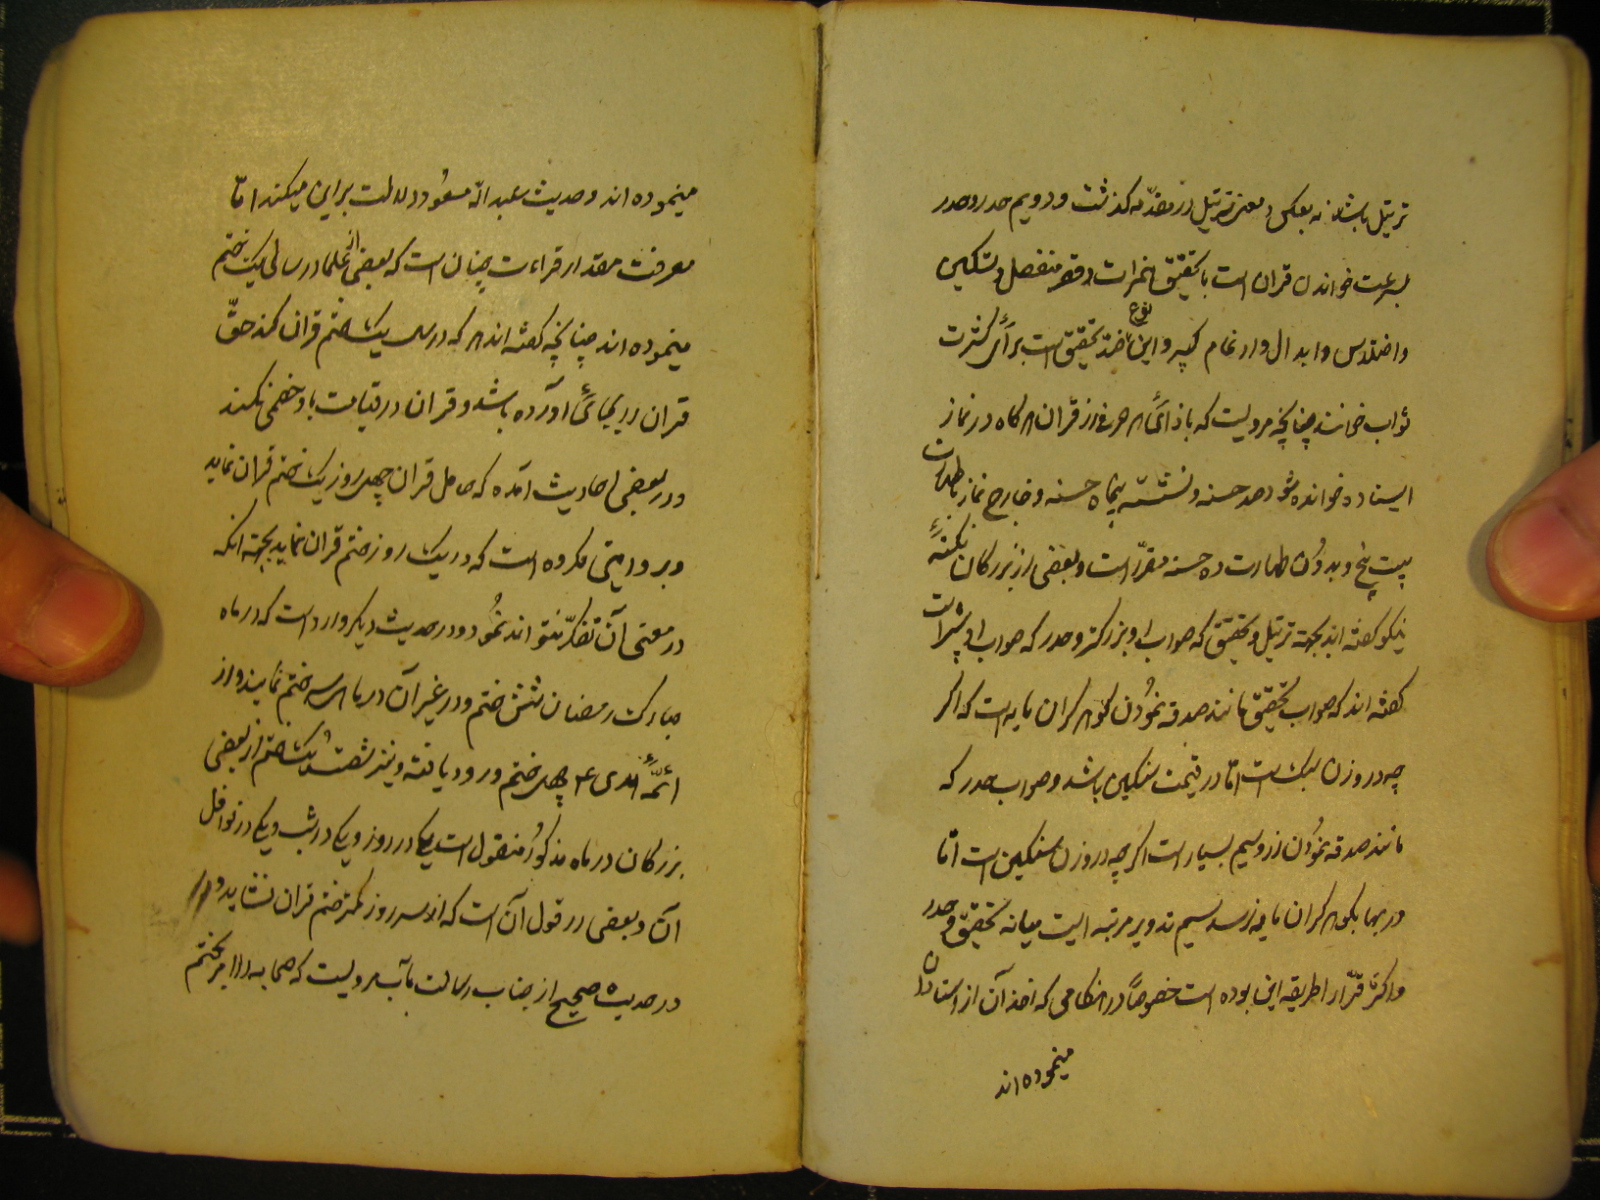 ترتیل باشد نه بعکس و معنی ترتیل در مقدّمه گذشت و دویم حدر و حدر
بسرعت خواندن قرانست با تحقیق همزات و قصر منفصل و تسکین
و اختلاس و ابدال و ادغام کبیر و این نوع ضدّ تحقیق است برای کثرت
ثواب خوانند چنانچه مرویست که باذای هر حرفی از قران هر کاه در نماز
ایستاده خوانده شود صد حسنه و نشسته پنجاه حسنه و خارج نماز با طهارت
بیست پنج و بدون طهارت ده حسنه مقرّر است و بعضی از بزرکان نکتهٔ
نیکو کفته اند بجهة ترتیل و تحقیق که صواب او بزرکتر و حدر که صواب او بیشتر است
کفته اند که صواب تحقیق مانند صدقه نمودن کوهر کران مایه است که اکر
چه در وزن سبک است امّا در قیمت سنکین باشد و صواب حدر که
مانند صدقه نمودن زر و سیم بسیار است اکر چه در وزن سنکین است امّا
در بها بکوهر کران مایه نرسد سیم تدویر مرتبه ایست میانه تحقیق و حدر
و اکثر قرّا را طریقه این بوده است خصوصاً در هنکامی که اخذ آن از استادان
مینموده اند
مینموده اند و حدیث عبد الله مسعود دلالت بر این میکند امّا
معرفت مقدار قراءت چنان است که بعضی از علما در سالی یک ختم
مینموده اند چنانچه کفته اند هر که در سال یک ختم قران کند حقّ
قران را بجای آورده باشد و قران در قیامت با او خصمی نکند
و در بعضی احادیث آمده که حامل قران چهل روز یک ختم قران نماید
و بروایتی مکروه است که در یک روز ختم قران نماید بجهة انکه
در معنی آن تفکّر نتواند نمود و در حدیث دیکر وارد است که در ماه
مبارک رمضان شش ختم و در غیر آن در ماهی سه ختم نمایند و از
ائمّهٔ هدی ع چهل ختم ورود یافته و نیز شصت و یک ختم از بعضی
بزرکان در ماه مذکور منقول است یکی در روز و یکی در شب و یکی در نوافل
آن و بعضی را قول آن است که از سه روز کمتر ختم قران نشاید و
در حدیث صحیح از جناب رسالت مآب مرویست که صحابه را امر بختم